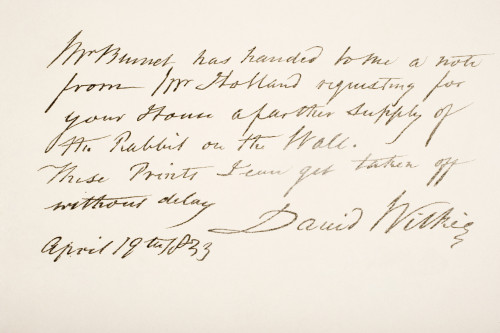 Mr Burnet has handed to me a note
from Mr Holland requesting for
your House a farther supply of
the Rabbit on the Wall.
These Prints I can get taken off
without delay
David Wilkie
April 19th 1833